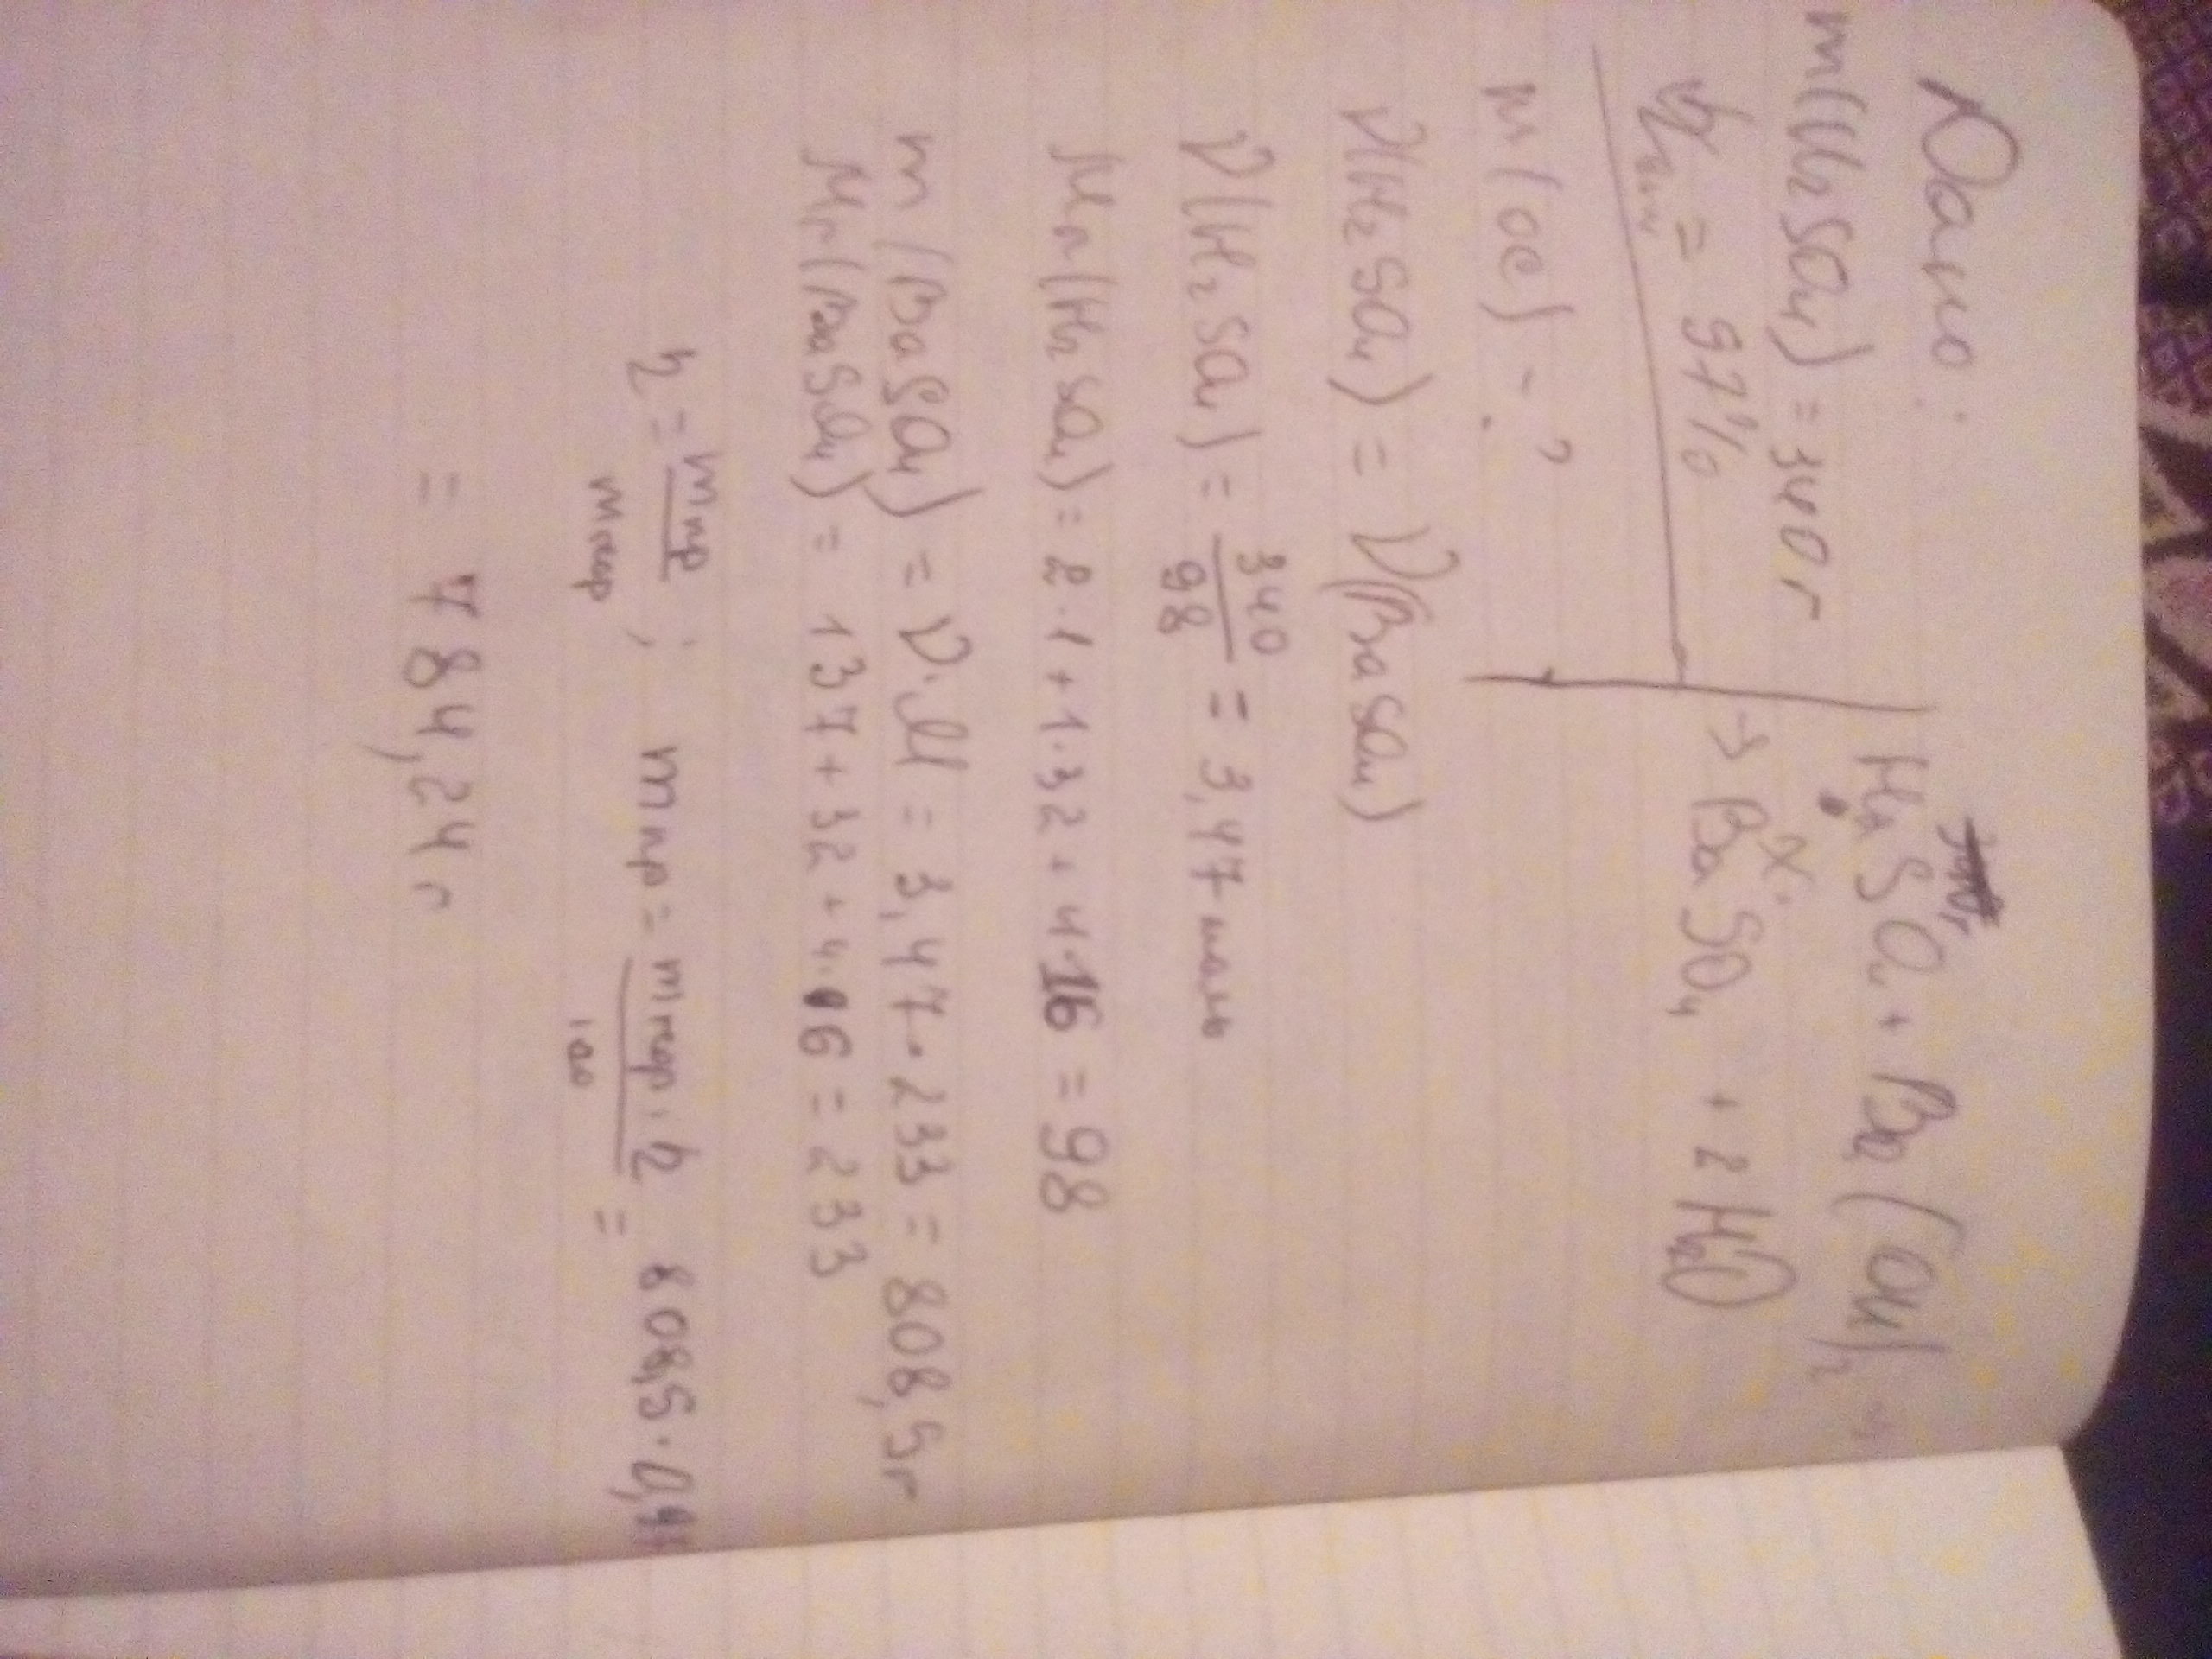 Дано:
m(H₂SO₄) = 340 г
η = 97%
m(ос) - ?
H₂SO₄ + Ba(OH)₂ →
x
→ BaSO₄ + 2H₂O
ν(H₂SO₄) = ν(BaSO₄)
ν(H₂SO₄) = 340/98 = 3,47 моль
Mr(H₂SO₄) = 2·1 + 1·32 + 4·16 = 98
m(BaSO₄) = ν·M = 3,47·233 = 808,5 г
Mr(BaSO₄) = 137 + 32 + 4·16 = 233
η = mпр/mтеор ; mпр = mтеор·η/100 = 808,5·0,97
= 784,24 г